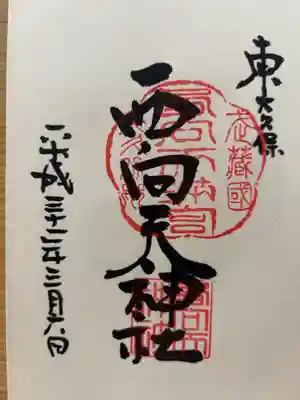 東大久保
西向天神社
平成三十二年三月六日
武蔵國